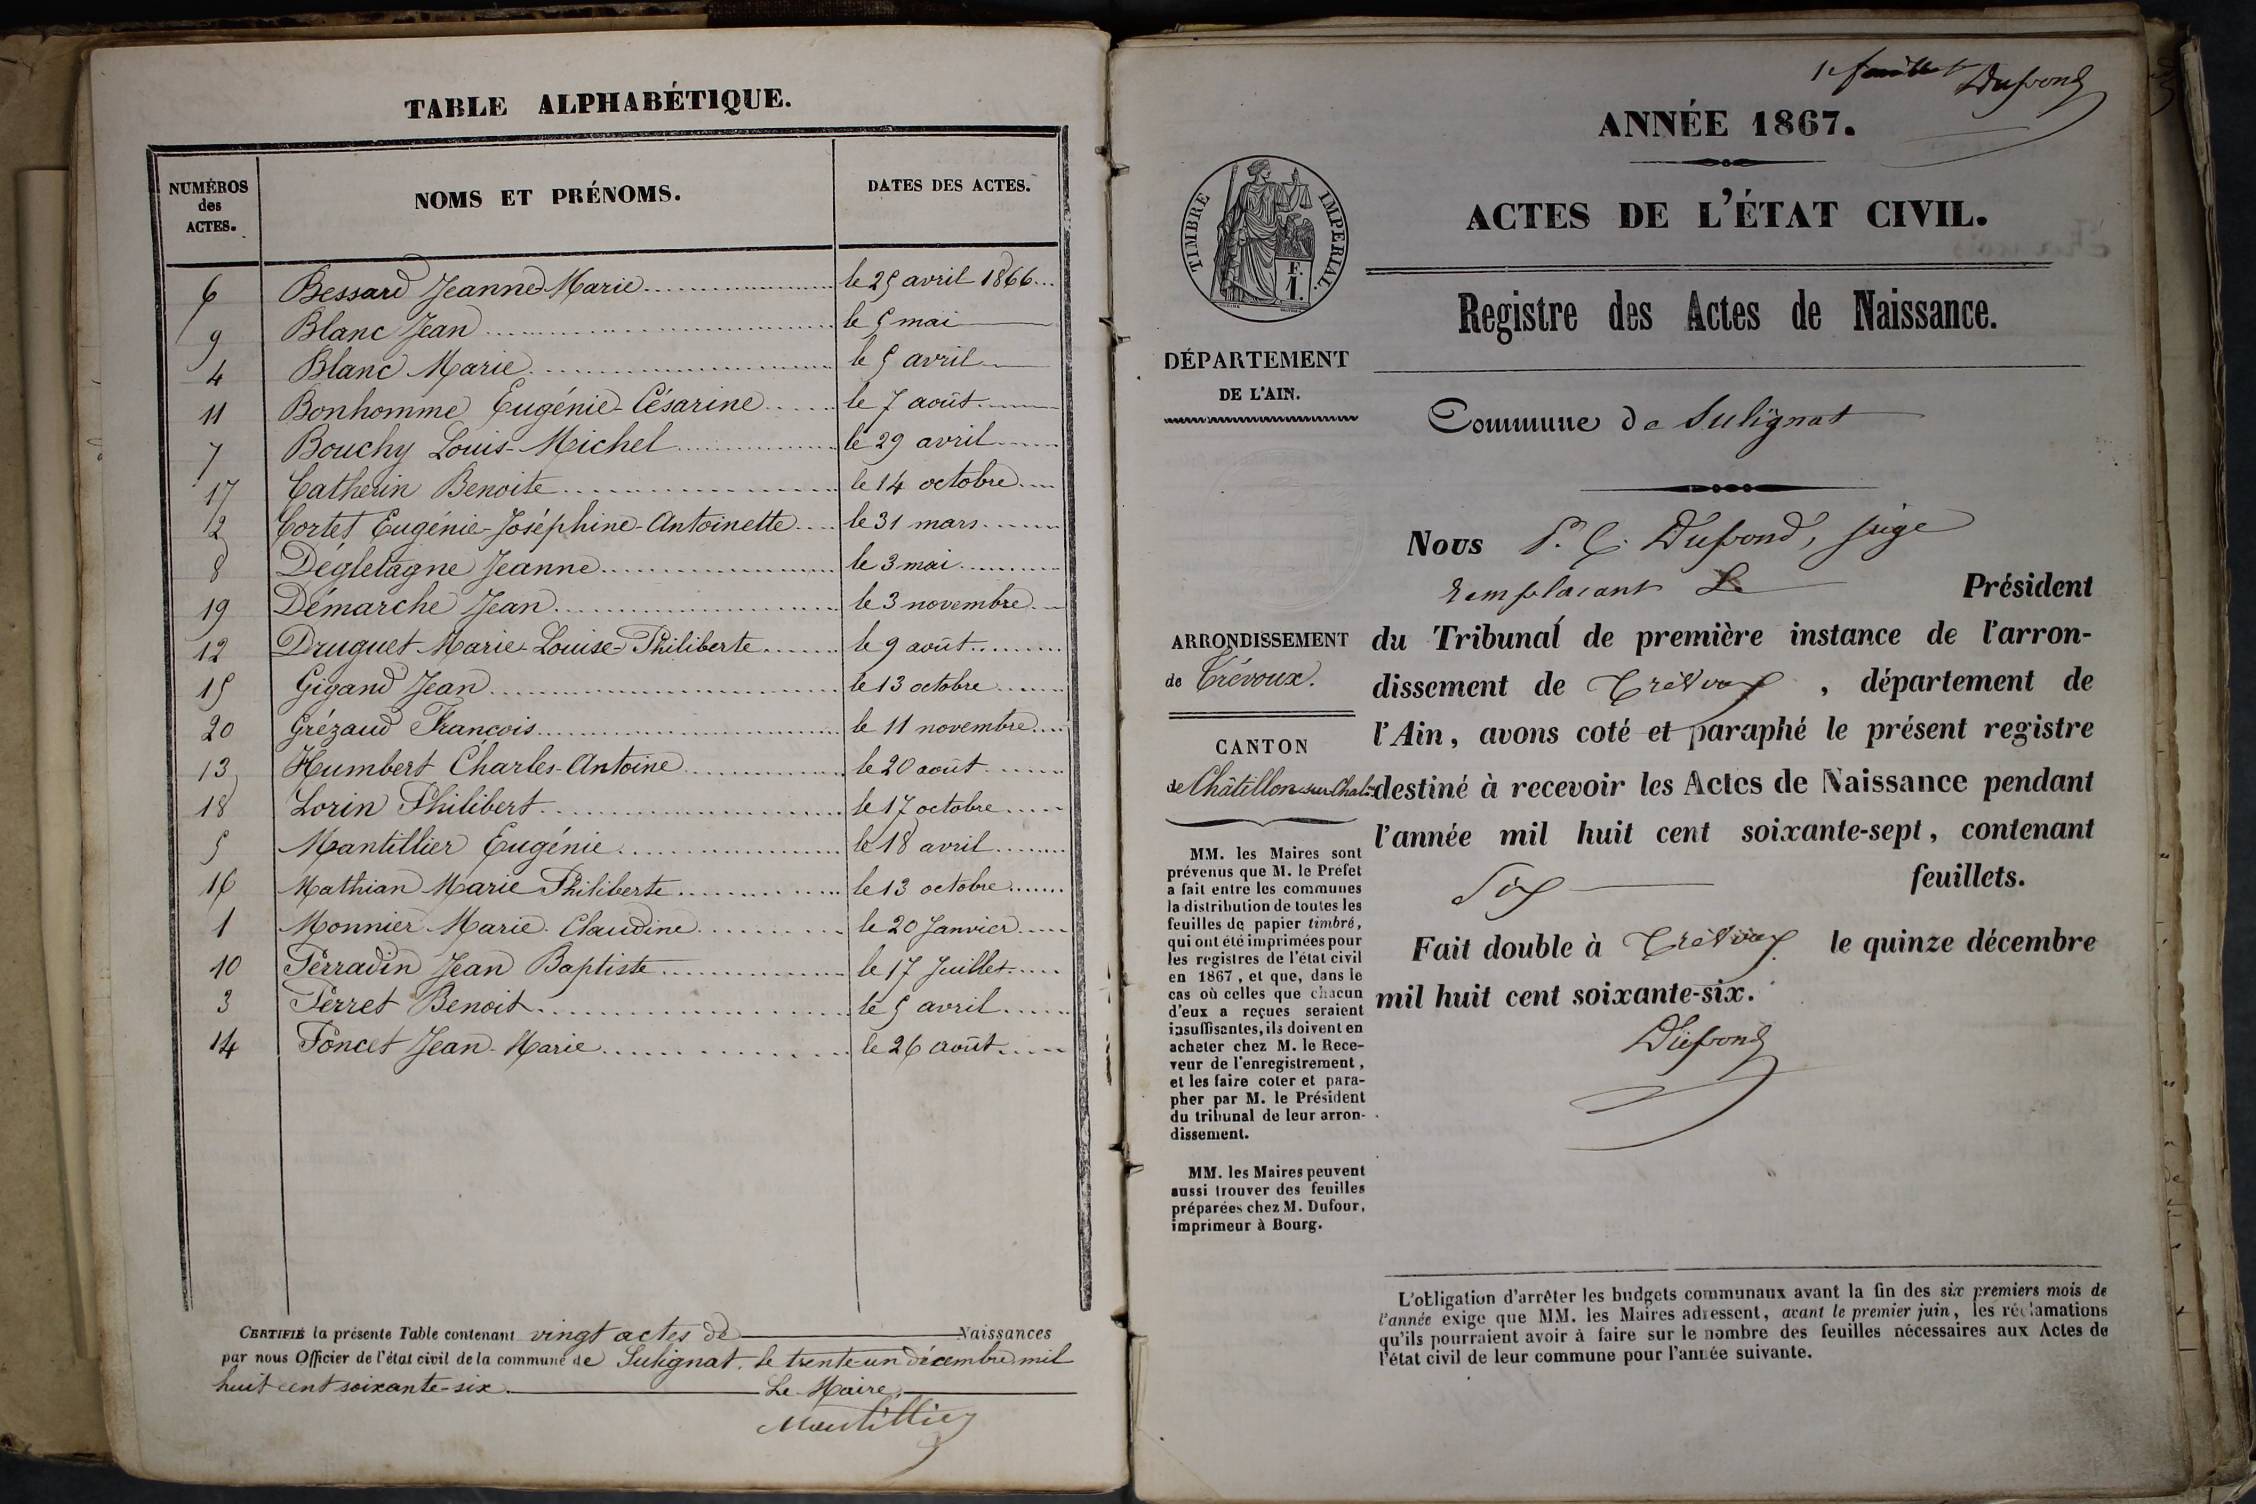 TABLE ALPHABÉTIQUE.
NUMÉROS des ACTES. NOMS ET PRÉNOMS. DATES DES ACTES.
6 Bessard Jeanne-Marie le 25 avril 1866
9 Blanc Jean le 5 mai
4 Blanc Marie le 5 avril
11 Bonhomme Eugénie-Césarine le 7 août
7 Bouchy Louis-Michel le 29 avril
17 Catherin Benoite le 14 octobre
2 Cortet Eugénie-Joséphine-Antoinette le 31 mars
8 Dégletagne Jeanne le 3 mai
19 Démarche Jean le 3 novembre
12 Druguet Marie-Louise-Philiberte le 9 août
15 Gigand Jean le 13 octobre
20 Grézaud François le 11 novembre
13 Humbert Charles-Antoine le 20 août
18 Lorin Philibert le 17 octobre
5 Mantillier Eugénie le 18 avril
16 Mathian Marie Philiberte le 13 octobre
1 Monnier Marie Claudine le 20 Janvier
10 Perradin Jean Baptiste le 17 Juillet
3 Perret Benoit le 5 avril
14 Poncet Jean-Marie le 26 août
CERTIFIÉ la présente Table contenant vingt actes de Naissances
par nous Officier de l'état civil de la commune de Sulignat, le trente-un décembre mil
huit cent soixante-six. Le Maire,
Mantillier
1er feuillet Dufond
ANNÉE 1867.
ACTES DE L'ÉTAT CIVIL.
Registre des Actes de Naissance.
TIMBRE IMPERIAL.
F.
1.
DÉPARTEMENT
DE L'AIN.
Commune de Sulignat
Nous P. C. Dufond, juge
remplacant Le Président
du Tribunal de première instance de l'arron-
dissement de Trévoux, département de
l'Ain, avons coté et paraphé le présent registre
destiné à recevoir les Actes de Naissance pendant
l'année mil huit cent soixante-sept, contenant
Six feuillets.
Fait double à Trévoux le quinze décembre
mil huit cent soixante-six.
Dufond
ARRONDISSEMENT
de Trévoux.
CANTON
de Châtillon-sur-Chalne
MM. les Maires sont
prévenus que M. le Préfet
a fait entre les communes
la distribution de toutes les
feuilles de papier timbré,
qui ont été imprimées pour
les registres de l'état civil
en 1867, et que, dans le
cas où celles que chacun
d'eux a reçues seraient
insuffisantes, ils doivent en
acheter chez M. le Rece-
veur de l'enregistrement,
et les faire coter et para-
pher par M. le Président
du tribunal de leur arron-
dissement.
MM. les Maires peuvent
aussi trouver des feuilles
préparées chez M. Dufour,
imprimeur à Bourg.
L'obligation d'arrêter les budgets communaux avant la fin des six premiers mois de
l'année exige que MM. les Maires adressent, avant le premier juin, les réclamations
qu'ils pourraient avoir à faire sur le nombre des feuilles nécessaires aux Actes de
l'état civil de leur commune pour l'année suivante.